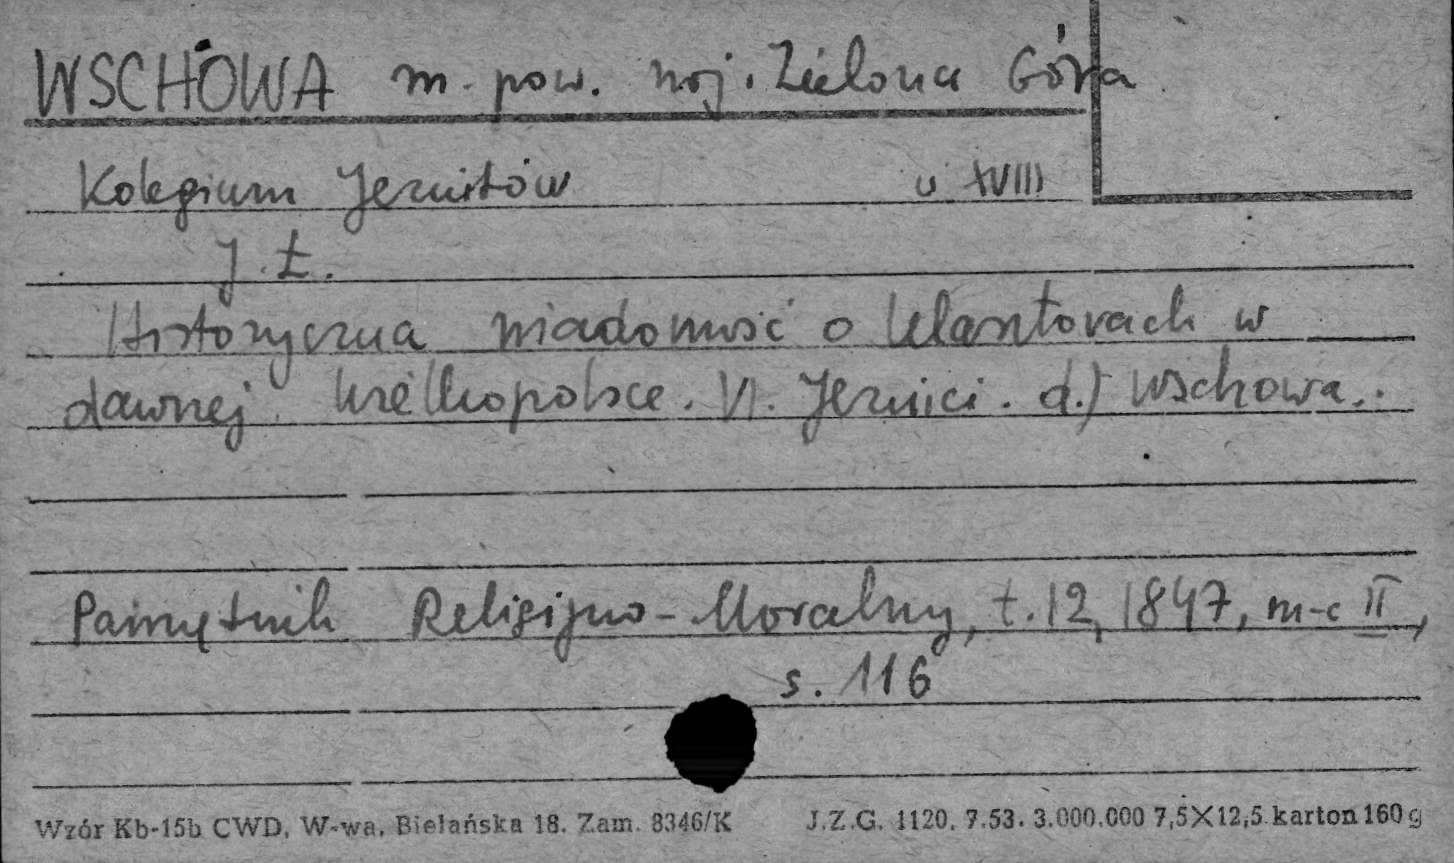 WSCHOWA m. pow. woj. Zielona Góra
Kolegium Jezuitów w XVIII
J. Ł.
Historyczna wiadomość o klasztorach w
dawnej Wielkopolsce. VI. Jezuici. d.) Wschowa..
Pamiętnik Religijno-Moralny, t. 12, 1847, m-c II,
s. 116
Wzór Kb-15b CWD, W-wa, Bielańska 18. Zam. 8346/K J.Z.G. 1120. 7.53. 3.000.000 7,5×12,5 karton 160 g